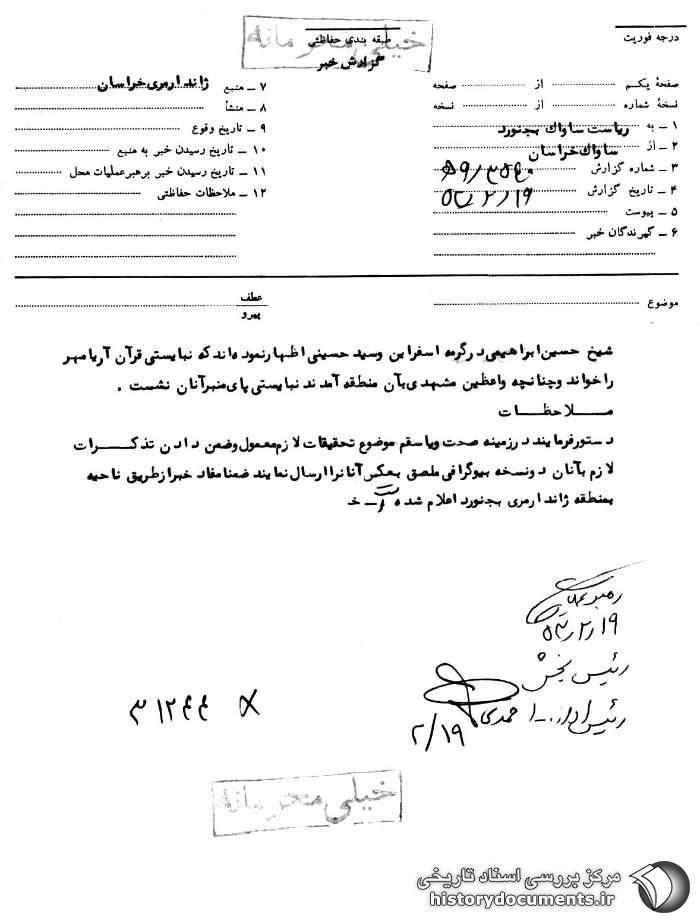 خیلی محرمانه
طبقه بندی حفاظتی
درجه فوریت
گزارش خبر
صفحهٔ یکم از صفحه
نسخهٔ شماره از نسخه
۱ ـ به ریاست ساواک بجنورد
۲ ـ از ساواک خراسان
۳ ـ شماره گزارش
۴ ـ تاریخ گزارش
۵ ـ پیوست
۶ ـ گیرندگان خبر
۷ ـ منبع ژاندارمری خراسان
۸ ـ منشأ
۹ ـ تاریخ وقوع
۱۰ ـ تاریخ رسیدن خبر به منبع
۱۱ ـ تاریخ رسیدن خبر برهبر عملیات محل
۱۲ ـ ملاحظات حفاظتی
موضوع
عطف
پیرو
شیخ حسین ابراهیمی در گرمه اسفراین وسید حسینی اظهار نموده اند که نبایستی قرآن آریا مهر
را خواند و چنانچه واعظین مشهدی بآن منطقه آمدند نبایستی پای منبر آنان نشست .
ملاحظات
دستور فرمایند در زمینه صحت ویا سقم موضوع تحقیقات لازم معمول وضمن دادن تذکرات
لازم بآنان دو نسخه بیوگرافی ملصق بعکس آنانرا ارسال نمایند ضمنا مفاد خبر از طریق ناحیه
بمنطقه ژاندارمری بجنورد اعلام شده است ـ خ
رهبر عملیات
۵۴/۲/۱۹
رئیس بخش
رئیس اداره احمدی
۲/۱۹
۳۱۲۴۴
خیلی محرمانه
مرکز بررسی اسناد تاریخی
historydocuments.ir